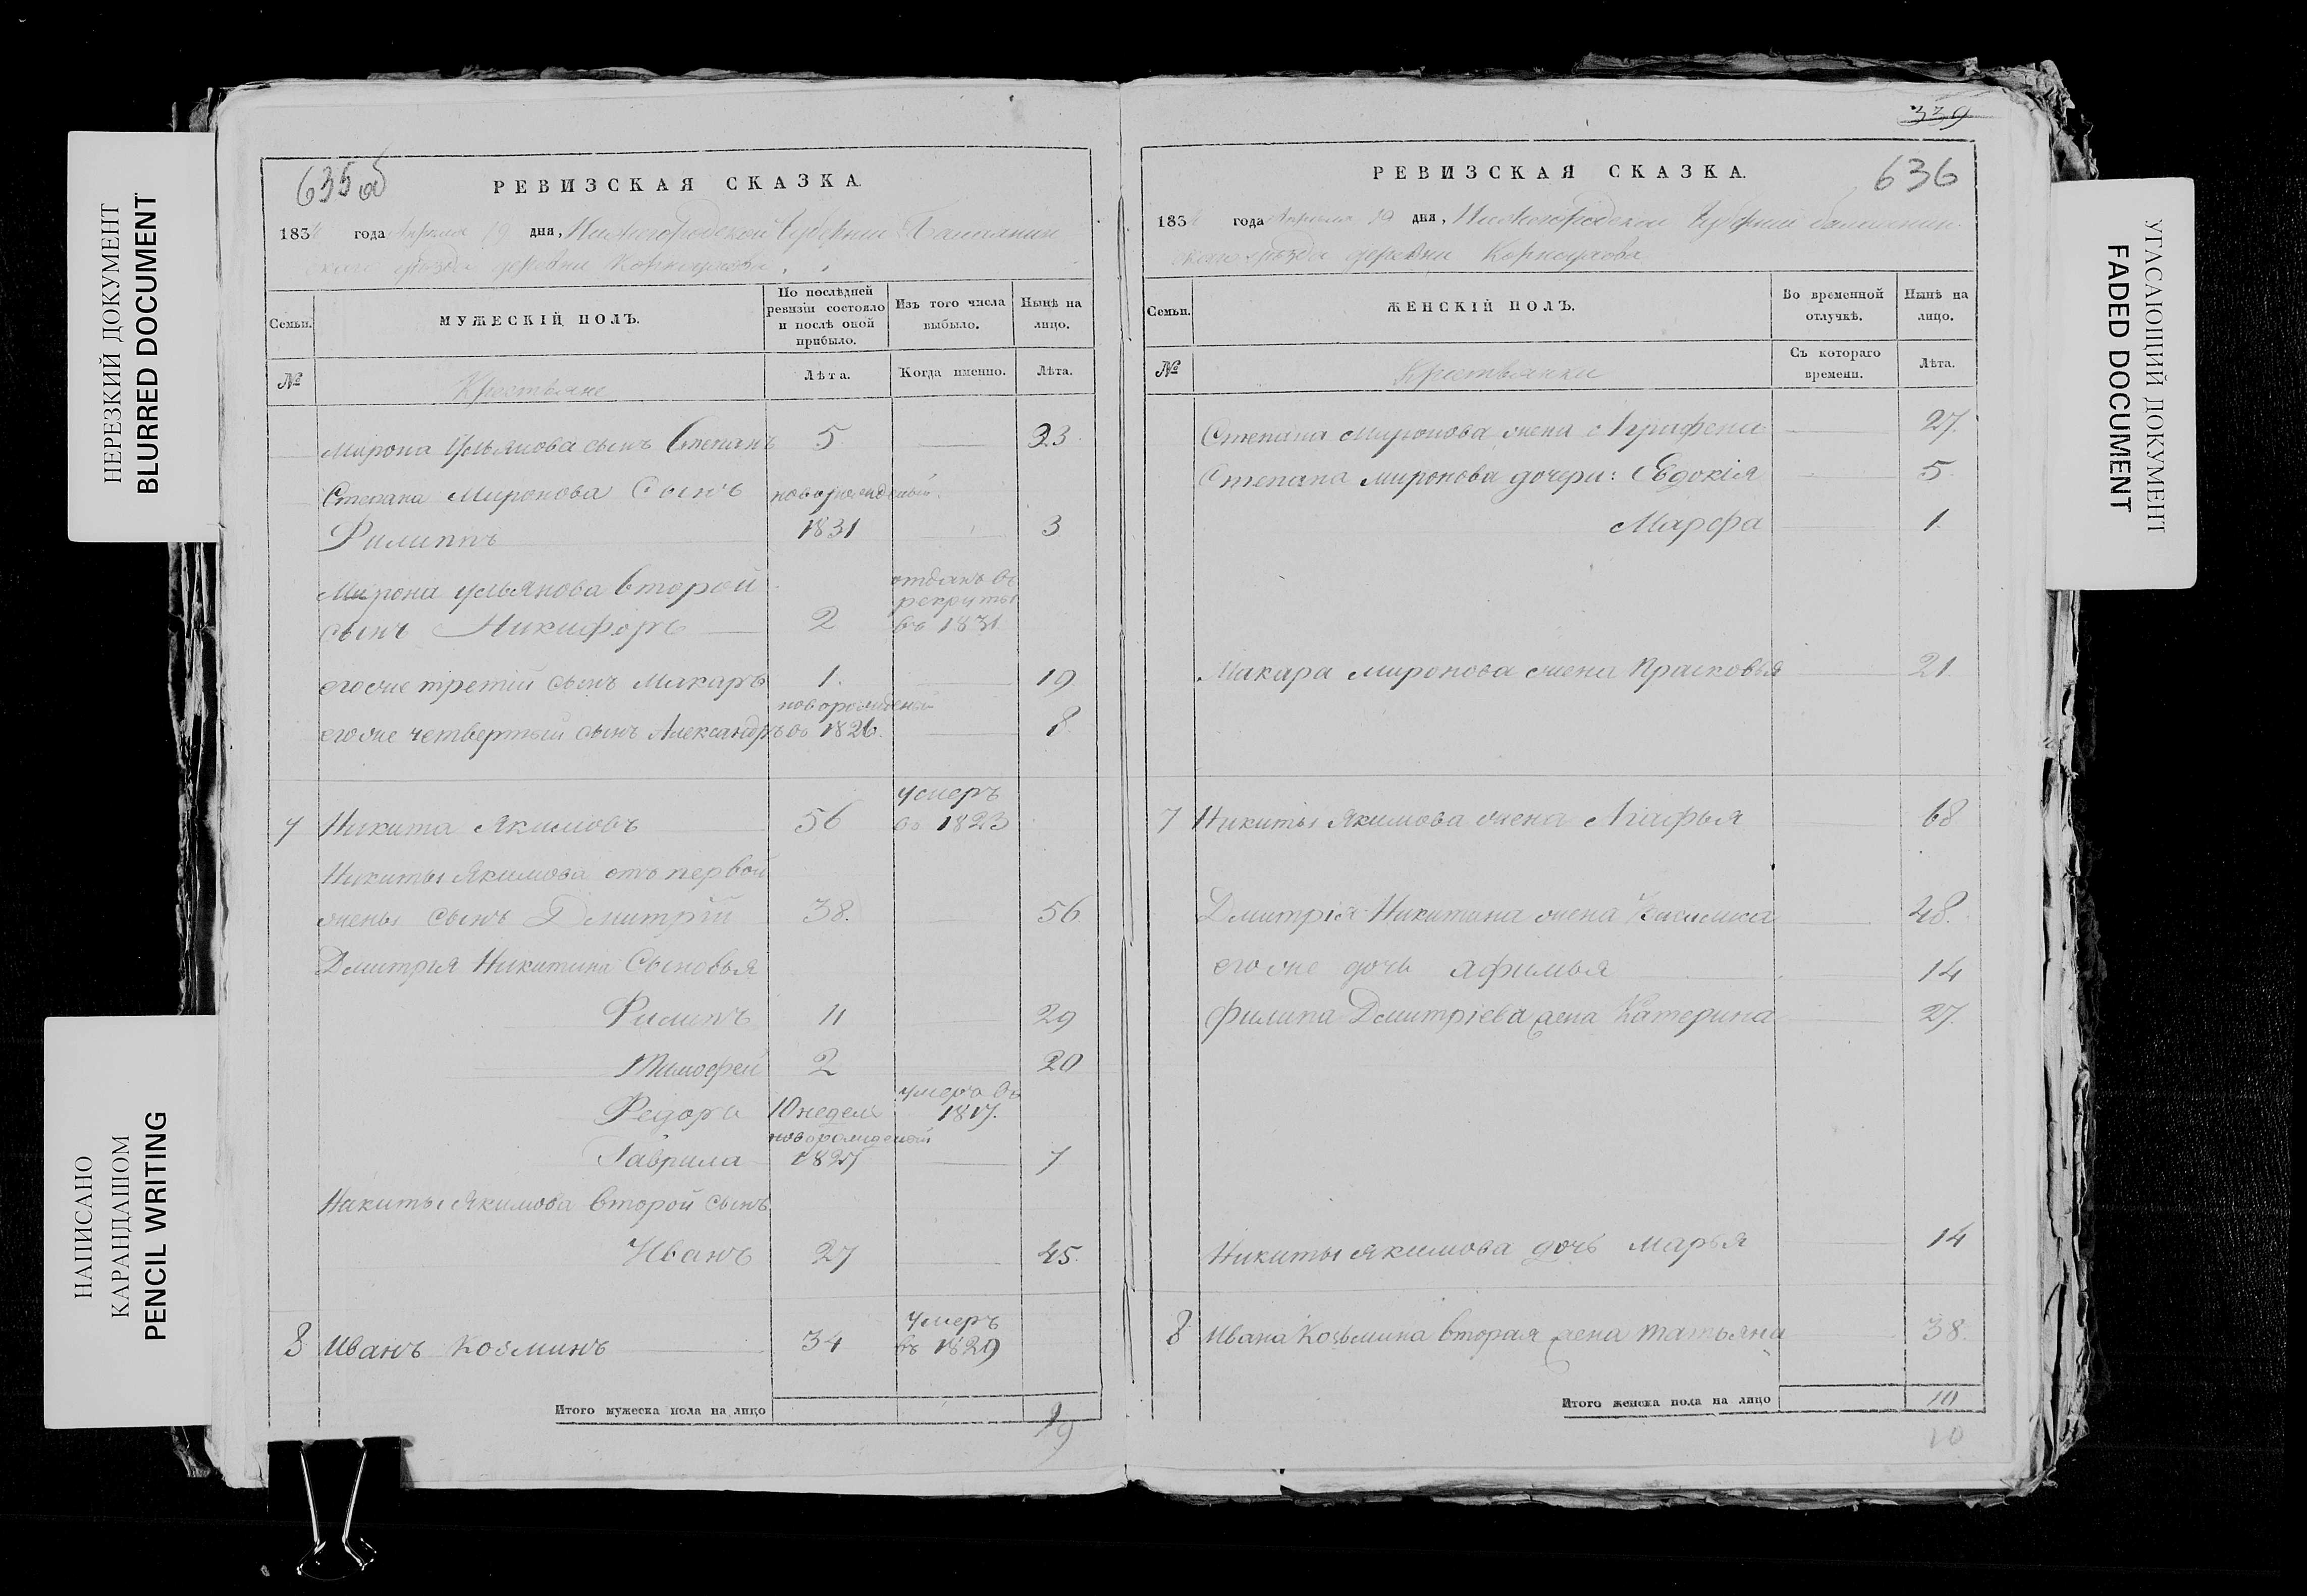 НЕРЕЗКИЙ ДОКУМЕНТ
BLURRED DOCUMENT
НАПИСАНО
КАРАНДАШОМ
PENCIL WRITING
635 об
РЕВИЗСКАЯ СКАЗКА.
1834 года Апреля 19 дня, Нижегородской Губернии Балахнин
скаго уезда деревни
Семьи.
МУЖЕСКІЙ ПОЛЪ.
По послѣдней ревизіи состояло и послѣ оной прибыло.
Изъ того числа выбыло.
Нынѣ на лицо.
№
Крестьяне
Лѣта.
Когда именно.
Лѣта.
Мирона Ульянова сынъ Степанъ 5 23
Степана Миронова Сынъ новорожденный
Филиппъ 1831 3
Мирона ульянова второй отданъ въ рекруты
сынъ Никифоръ 2 въ 1831
егоже третий сынъ Макаръ 1. 19
новорожденый
егоже четвертый сынъ Александръ въ 1826. 8
умеръ
7 Никита Якимовъ 56 во 1823
Никиты Якимова отъ первой
жены сынъ Дмитрій 38. 56
Дмитрия Никитина Сыновья
Филипъ 11 29
Тимофей 2 20
умеръ въ
Федоръ 10 недель 1817.
новорожденой
Гаврила 1827 7
Никиты Якимова второй сынъ
Иванъ 27 45.
умеръ
8 Иванъ Козминъ 34 въ 1829
Итого мужеска пола на лицо 9
9
339
636
РЕВИЗСКАЯ СКАЗКА.
1834 года Апреля 19 дня, Нижегородской Губернии балахнин
скаго уезда деревни
Семьи.
ЖЕНСКІЙ ПОЛЪ.
Во временной отлучкѣ.
Нынѣ на лицо.
№
Крестьянки
Съ котораго времени.
Лѣта.
Степана миронова жена Аграфена 27.
Степана миронова дочери: Евдокія 5
Марфа 1
Макара миронова жена Прасковья 21
7 Никиты Якимова жена Агафья 68
Дмитрія Никитина жена Василиса 48.
егоже дочь Афимья 14
филипа Дмитріева жена Катерина 27.
Никиты якимова дочь марья 14
8 Ивана Козьмина вторая жена татьяна 38.
Итого женска пола на лицо 10
10
УГАСАЮЩИЙ ДОКУМЕНТ
FADED DOCUMENT